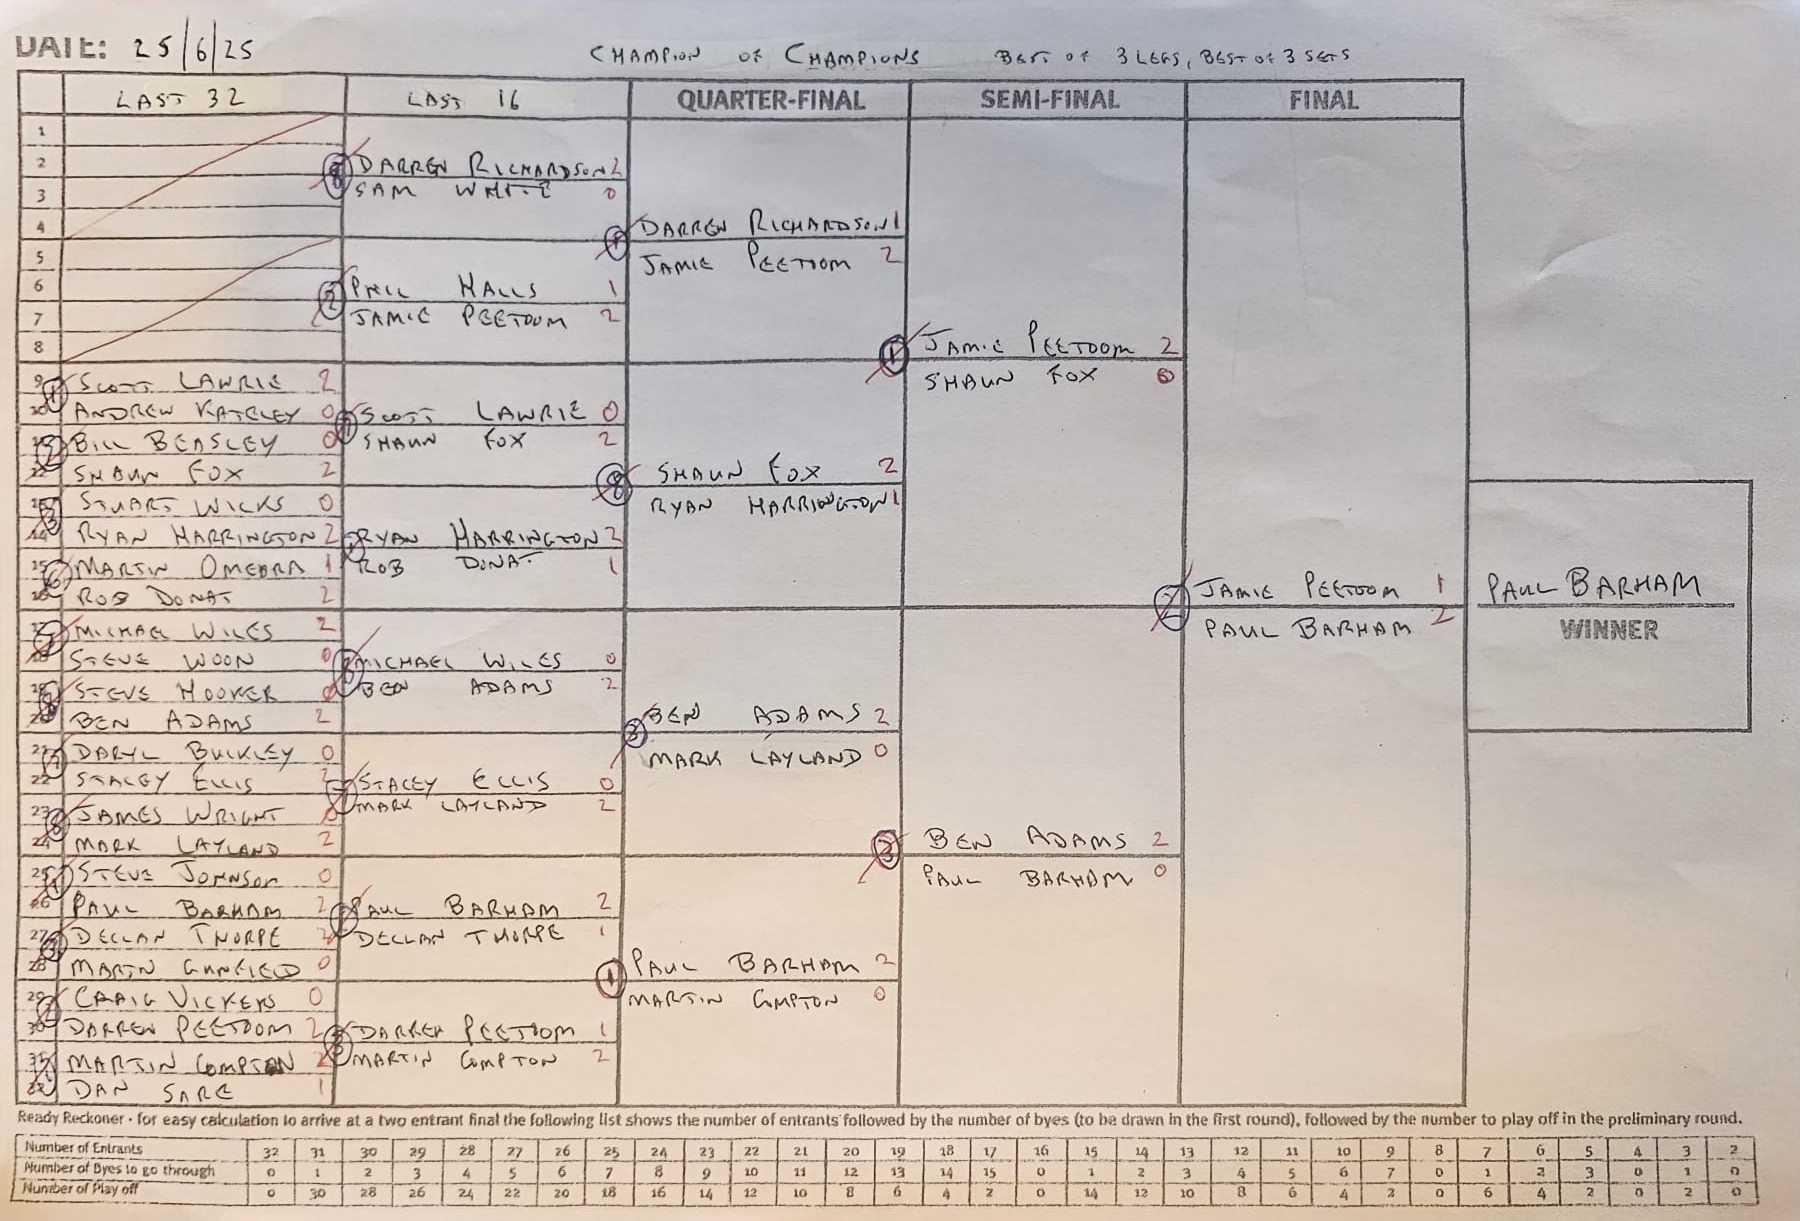 DATE: 25/6/25
CHAMPION OF CHAMPIONS BEST OF 3 LEGS, BEST OF 3 SETS
LAST 32 LAST 16 QUARTER-FINAL SEMI-FINAL FINAL
1
2
3
4
5
6
7
8
9 SCOTT LAWRIE 2
10 ANDREW KATELEY 0
BILL BEASLEY 0
SHAUN FOX 2
STUART WICKS 0
14 RYAN HARRINGTON 2
15 MARTIN OMEARA 1
16 ROB DONAT 2
17 MICHAEL WILES 2
18 STEVE WOON 0
19 STEVE HOOKER 0
20 BEN ADAMS 2
21 DARYL BUCKLEY 0
22 STACEY ELLIS 2
23 JAMES WRIGHT 0
24 MARK LAYLAND 2
25 STEVE JOHNSON 0
26 PAUL BARHAM 2
27 DECLAN THORPE 2
28 MARTN GUNFIELD 0
29 CRAIG VICKERS 0
30 DARREN PEETOOM 2
31 MARTIN COMPTON 2
32 DAN SARE 1
DARREN RICHARDSON 2
SAM WHITE 0
PHIL HALLS 1
JAMIE PEETOOM 2
SCOTT LAWRIE 0
SHAUN FOX 2
RYAN HARRINGTON 2
ROB DONAT 1
MICHAEL WILES 0
BEN ADAMS 2
STACEY ELLIS 0
MARK LAYLAND 2
PAUL BARHAM 2
DECLAN THORPE 1
DARREN PEETOOM 1
MARTIN COMPTON 2
DARREN RICHARDSON 1
JAMIE PEETOOM 2
SHAUN FOX 2
RYAN HARRINGTON 1
BEN ADAMS 2
MARK LAYLAND 0
PAUL BARHAM 2
MARTIN COMPTON 0
JAMIE PEETOOM 2
SHAUN FOX 0
BEN ADAMS 2
PAUL BARHAM 0
JAMIE PEETOOM 1
PAUL BARHAM 2
PAUL BARHAM
WINNER
Ready Reckoner - for easy calculation to arrive at a two entrant final the following list shows the number of entrants followed by the number of byes (to be drawn in the first round), followed by the number to play off in the preliminary round.
Number of Entrants 32 31 30 29 28 27 26 25 24 23 22 21 20 19 18 17 16 15 14 13 12 11 10 9 8 7 6 5 4 3 2
Number of Byes to go through 0 1 2 3 4 5 6 7 8 9 10 11 12 13 14 15 0 1 2 3 4 5 6 7 0 1 2 3 0 1 0
Number of Play off 0 30 28 26 24 22 20 18 16 14 12 10 8 6 4 2 0 14 12 10 8 6 4 2 0 6 4 2 0 2 0